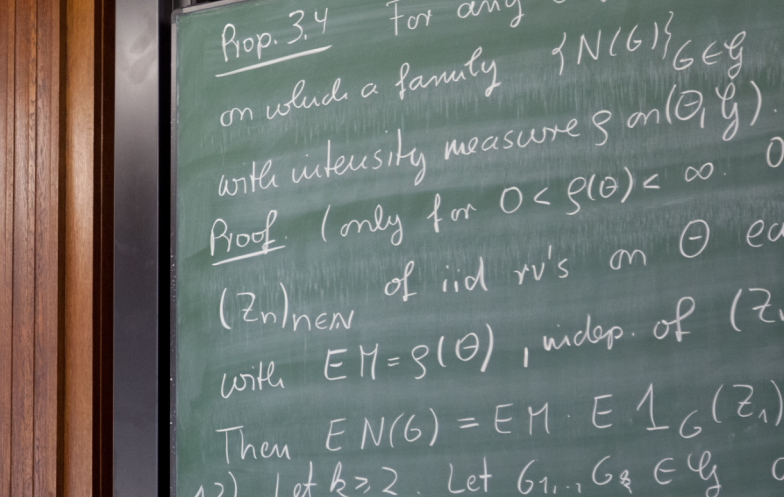 Prop. 3.4 For any
on which a family {N(G)}_{G∈𝒢}
with intensity measure ρ on (Θ, 𝒢)
Proof. (only for 0 < ρ(Θ) < ∞.
(Z_n)_{n∈ℕ} of iid rv's on Θ
with EM = ρ(Θ), indep. of (Z
Then EN(G) = EM · E 1_G (Z_1)
2) Let k ≥ 2. Let G_1, .., G_k ∈ 𝒢